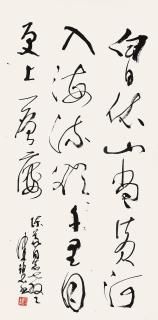 白日依山尽黄河
入海流欲穷千里目
更上一层楼